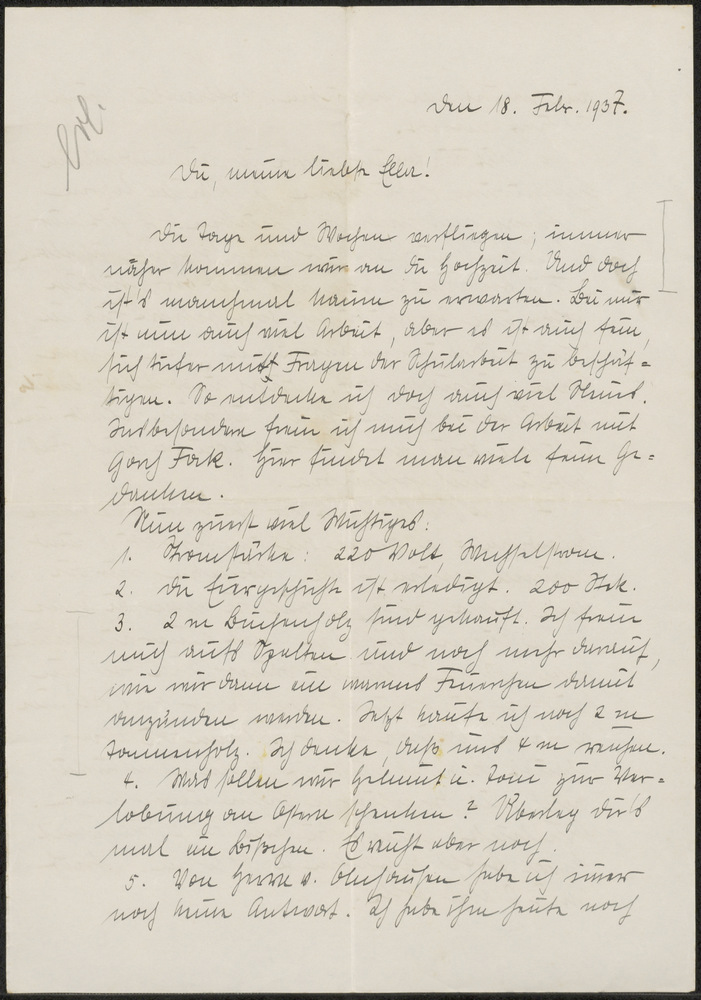 erl.
den 18. Febr. 1937.
Du, meine liebste Ella!
Die Tage und Wochen verfliegen, immer
näher kommen wir an die Hochzeit. Und doch
ist's manchmal kaum zu erwarten. Bei mir
ist nun auch viel Arbeit, aber es ist auch fein,
sich tiefer mit Fragen der Schularbeit zu beschäf=
tigen. So entdecke ich doch auch viel Neues.
Insbesondere freue ich mich bei der Arbeit mit
Gorch Fock. Hier findet man viele feine Ge=
danken.
Nun zuerst viel Wichtiges:
1. Stromstärke: 220 Volt, Wechselstrom.
2. Die Eiergeschichte ist erledigt. 200 Stck.
3. 2 m Buchenholz sind gekauft. Ich freue
mich aufs Spalten und noch mehr darauf,
wie wir dann ein warmes Feuerchen damit
anzünden werden. Jetzt kaufe ich noch 2 m
Tannenholz. Ich denke, daß uns 4 m reichen.
4. Was sollen wir Helmut u. Toni zur Ver=
lobung an Ostern schenken? Überleg dir's
mal ein bißchen. Es reicht aber noch.
5. Von Herrn v. Olnhausen habe ich immer
noch keine Antwort. Ich habe ihm heute noch